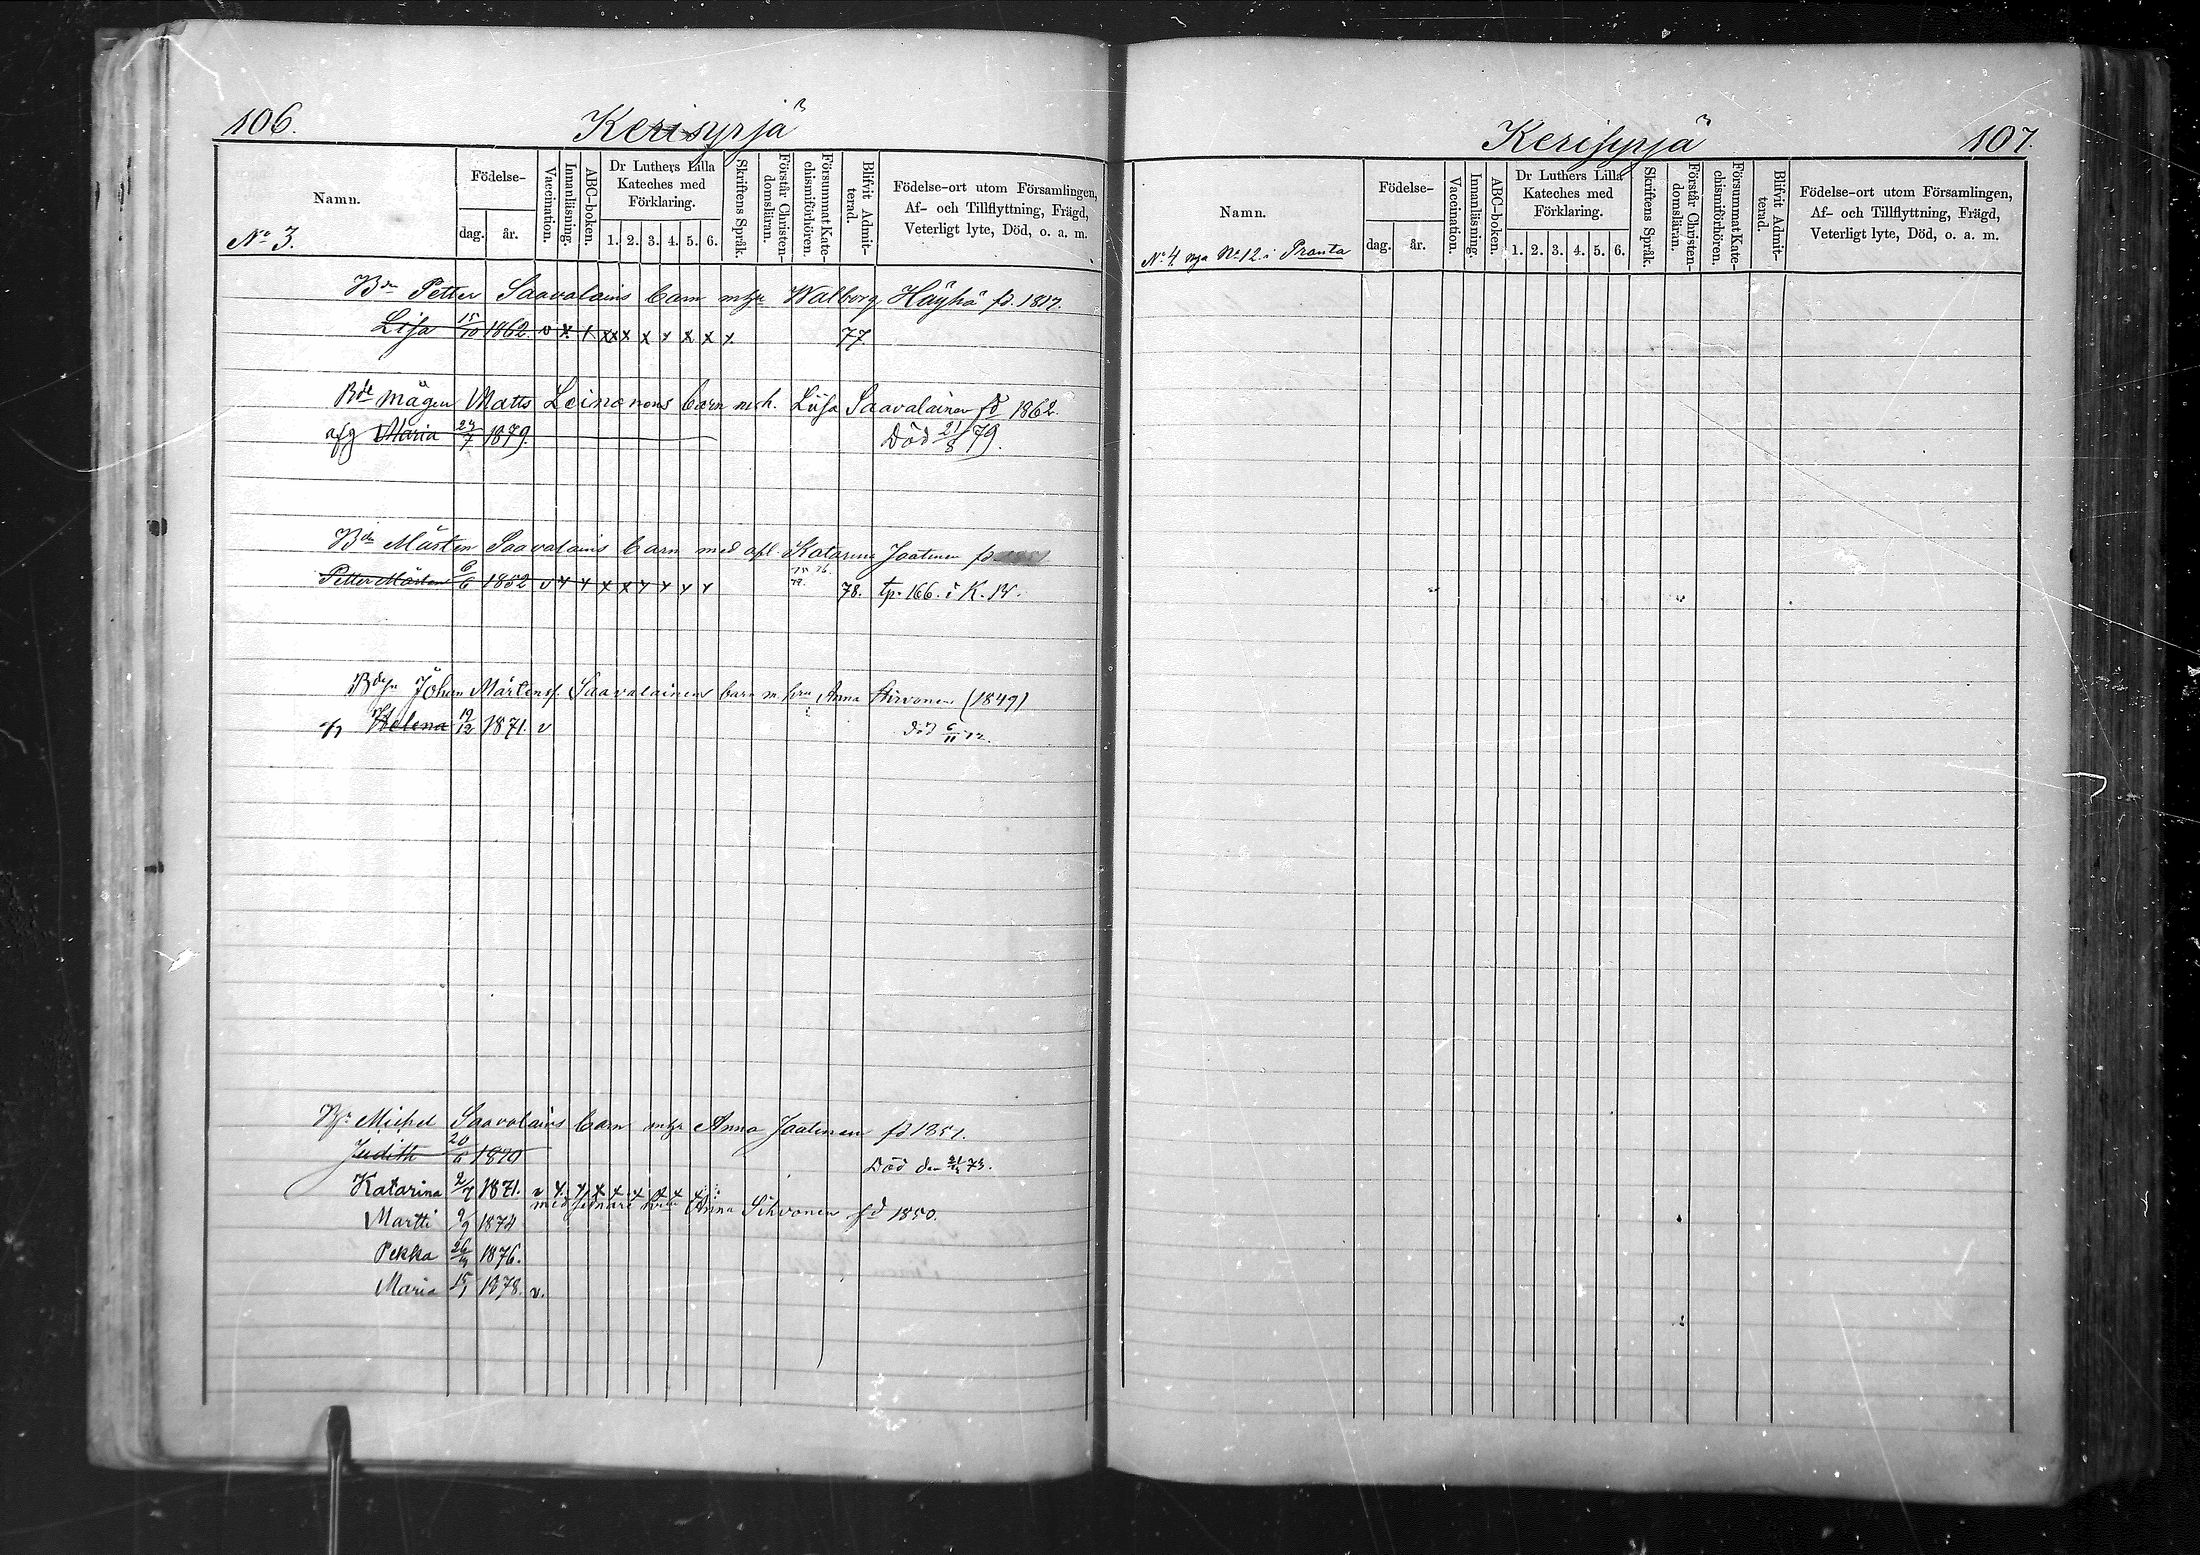 106.
Kerisyrjä
Namn.
Födelse-
dag.
år.
Vaccination.
Innanläsning.
ABC-boken.
Dr Luthers Lilla
Kateches med
Förklaring.
1. 2. 3. 4. 5. 6.
Skriftens Språk.
Förstår Christen-
domsläran.
Försummat Kate-
chismiförhören.
Blifvit Admit-
terad.
Födelse-ort utom Församlingen,
Af- och Tillflyttning, Frägd,
Veterligt lyte, Död, o. a. m.
No 3.
Bdn Petter Saavalains barn m hu Walborg Häyhä fd. 1817.
Lisa 15/10 1862. v x x xxx x x x x x 77.
Bde mågen Matts Leinonens barn m. h. Liisa Saavalainen fd 1862.
afg Maria 24/7 1879. Död 21/8 79.
Bdn Mårten Saavalains barn med afl. Katarina Jaatinen fd
Petter Mårten 6/6 1852 v x x x x x x x x 78. tp. 166. i K. 14.
Johan Mårtenss. Saavalainens barn m. hru Anna Hirvonen (1849)
Helena 19/12 1871. v död 6/11 72.
Michel Saavalains barn m hu Anna Jaatinen fd 1851.
Judith 20/6 1870 Död den 73.
Katarina 2/7 1871. v x x x x x x x x
med senare hru Anna Sihvonen fd 1850.
Martti 9/9 1874
Pekka 26/4 1876.
Maria 15/1 1878. v.
Kerisyrjä
107.
Namn.
Födelse-
dag.
år.
Vaccination.
Innanläsning.
ABC-boken.
Dr Luthers Lilla
Kateches med
Förklaring.
1. 2. 3. 4. 5. 6.
Skriftens Språk.
Förstår Christen-
domsläran.
Försummat Kate-
chismiförhören.
Blifvit Admit-
terad.
Födelse-ort utom Församlingen,
Af- och Tillflyttning, Frägd,
Veterligt lyte, Död, o. a. m.
No 4. nya No 12. i Pranta